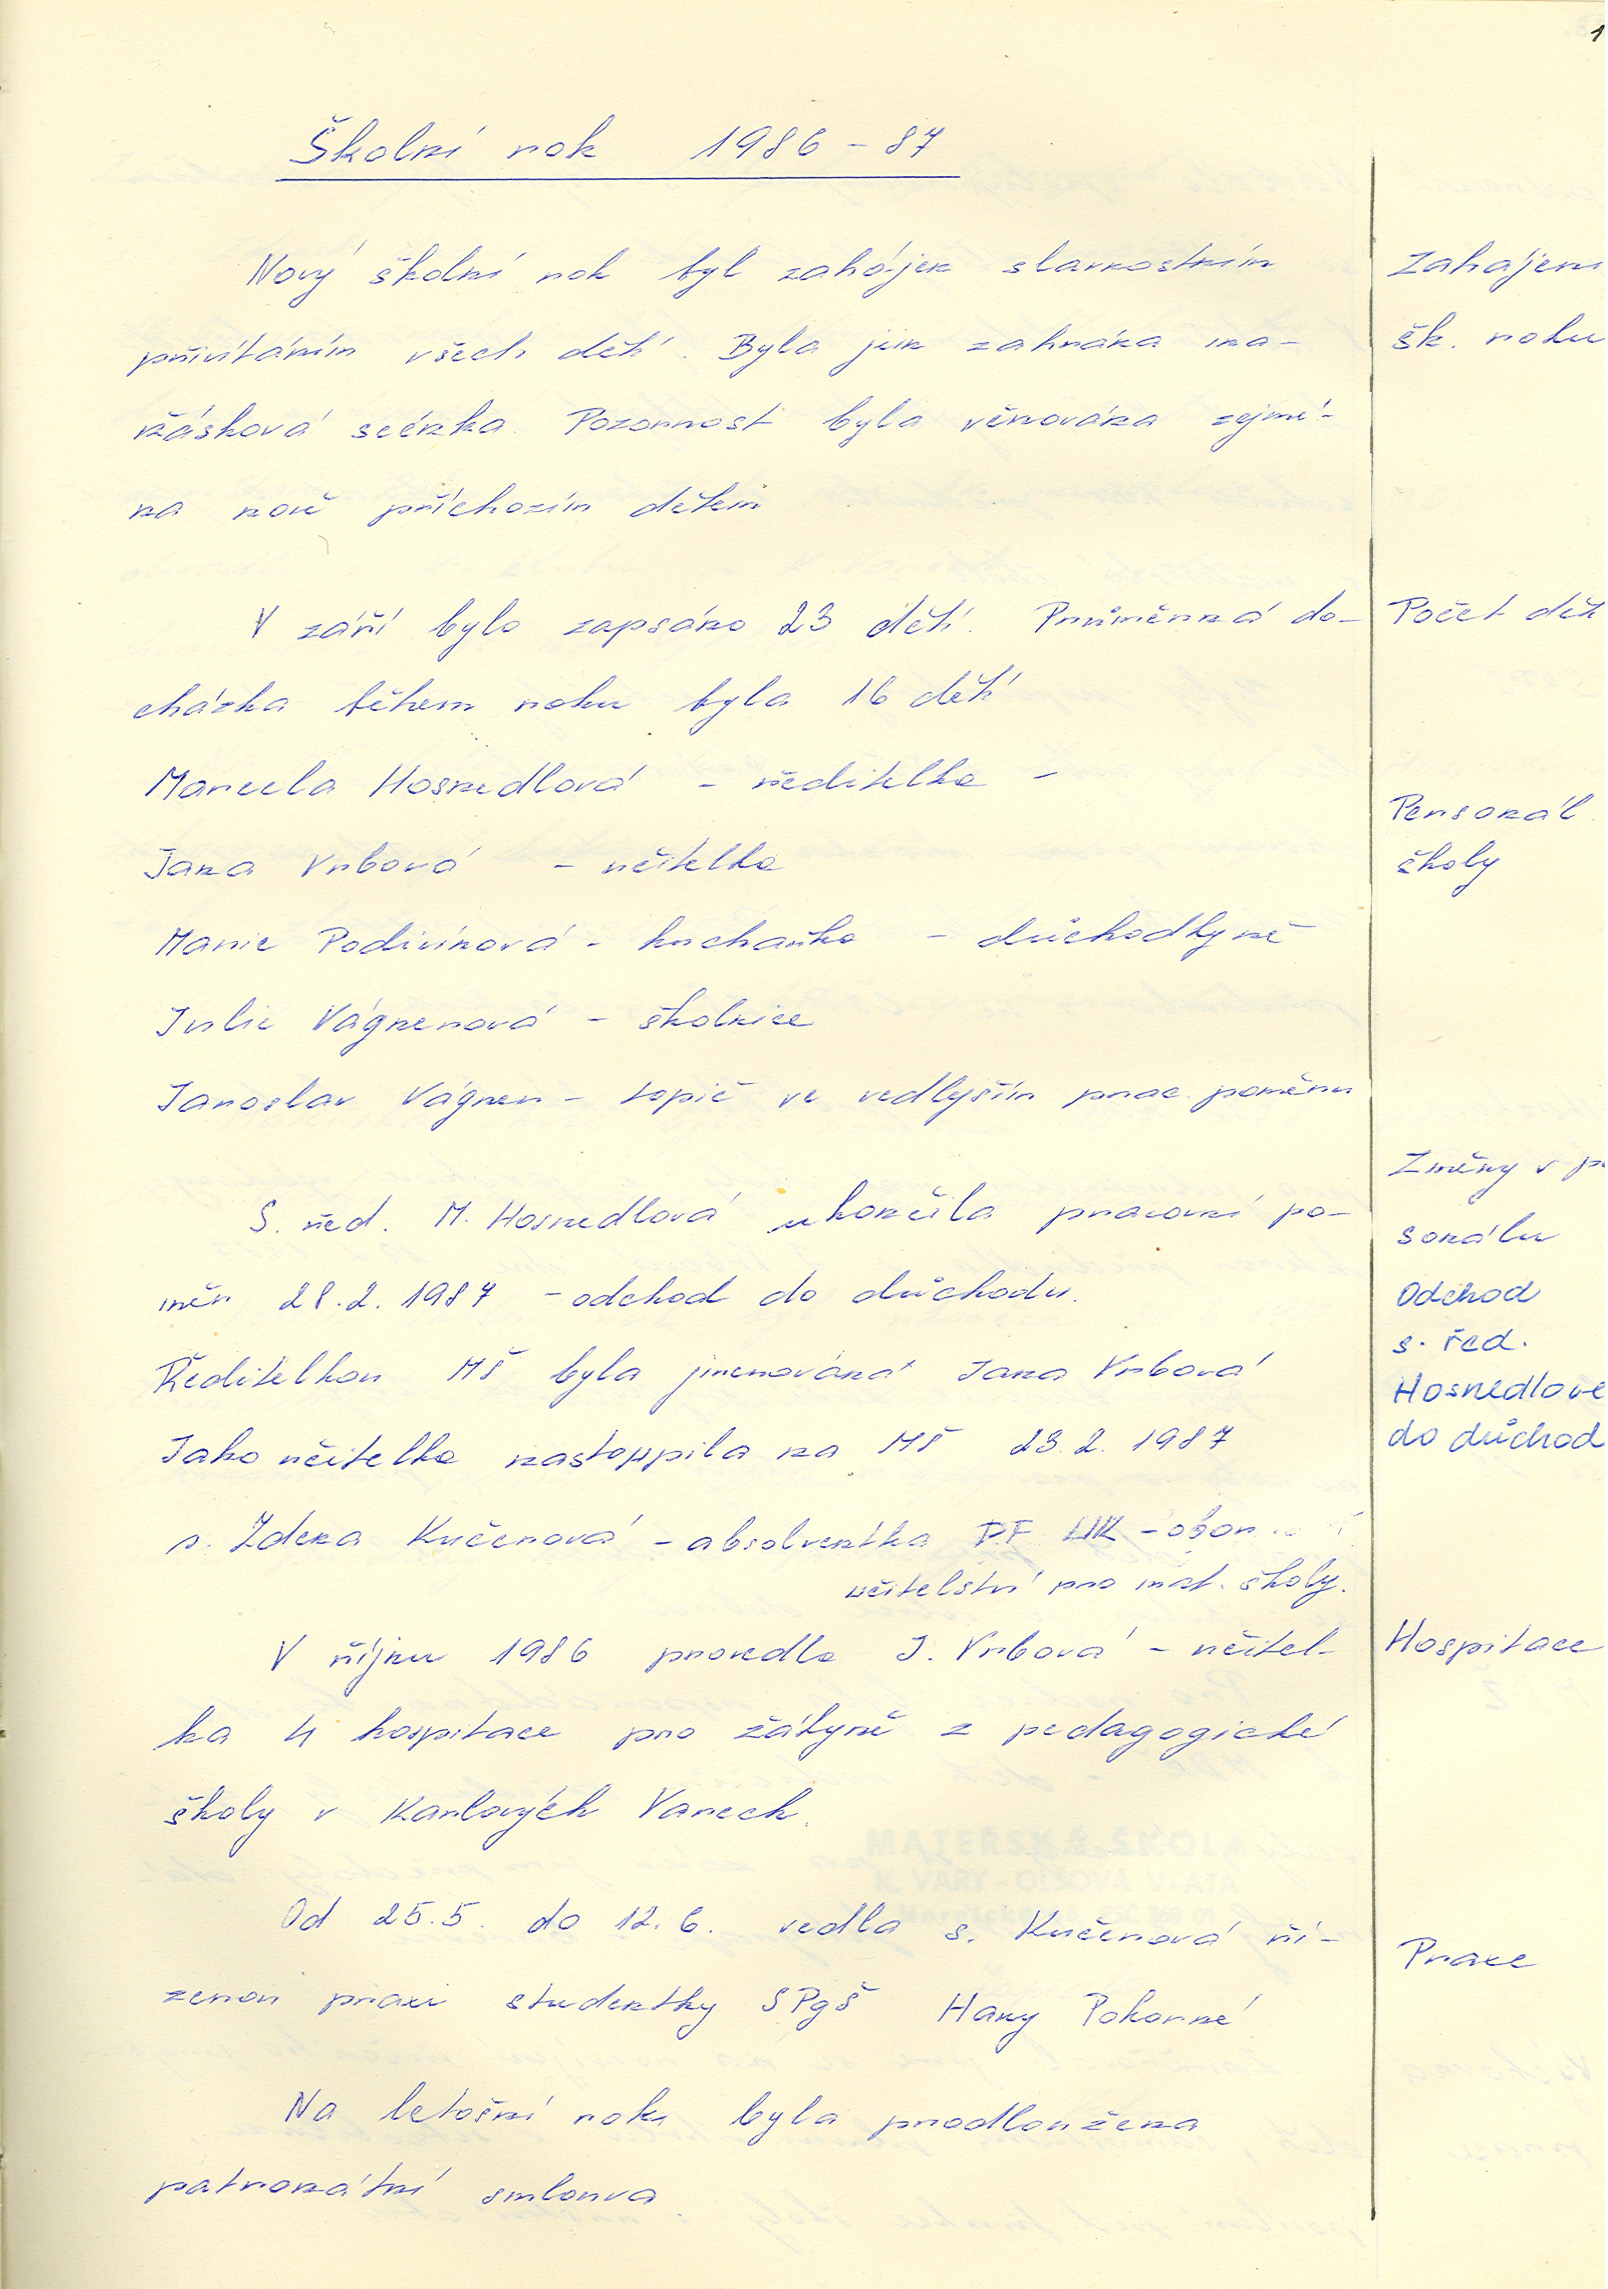 1
Školní rok 1986 - 87
Nový školní rok byl zahájen slavnostním
přivítáním všech dětí. Byla jim zahrána ma-
ňásková scénka. Pozornost byla věnována zejmé-
na nově příchozím dětem
V září bylo zapsáno 23 dětí. Průměrná do-
cházka během roku byla 16 dětí
Marcela Hosnedlová - ředitelka -
Jana Vrbová - učitelka
Marie Podivínová - kuchařka - důchodkyně
Julie Vágnerová - školnice
Jaroslav Vágner - topič ve vedlejším prac. poměru
S. řed. M. Hosnedlová ukončila pracovní po-
měr 28.2. 1987 - odchod do důchodu.
Ředitelkou MŠ byla jmenována Jana Vrbová
Jako učitelka nastoupila na MŠ 23.2. 1987
s. Zdena Kučerová - absolventka PF UK - obor
učitelství pro mat. školy.
V říjnu 1986 provedla J. Vrbová - učitel-
ka 4 hospitace pro žákyně z pedagogické
školy v Karlových Varech.
Od 25.5. do 12.6. vedla s. Kučerová ří-
zenou praxi studentky SPgŠ Hany Pokorné
Na letošní rok byla prodloužena
patronátní smlouva
Zahájení
šk. roku
Počet dětí
Personál
školy
Změny v pe
sonálu
Odchod
s. řed.
Hosnedlové
do důchod
Hospitace
Praxe